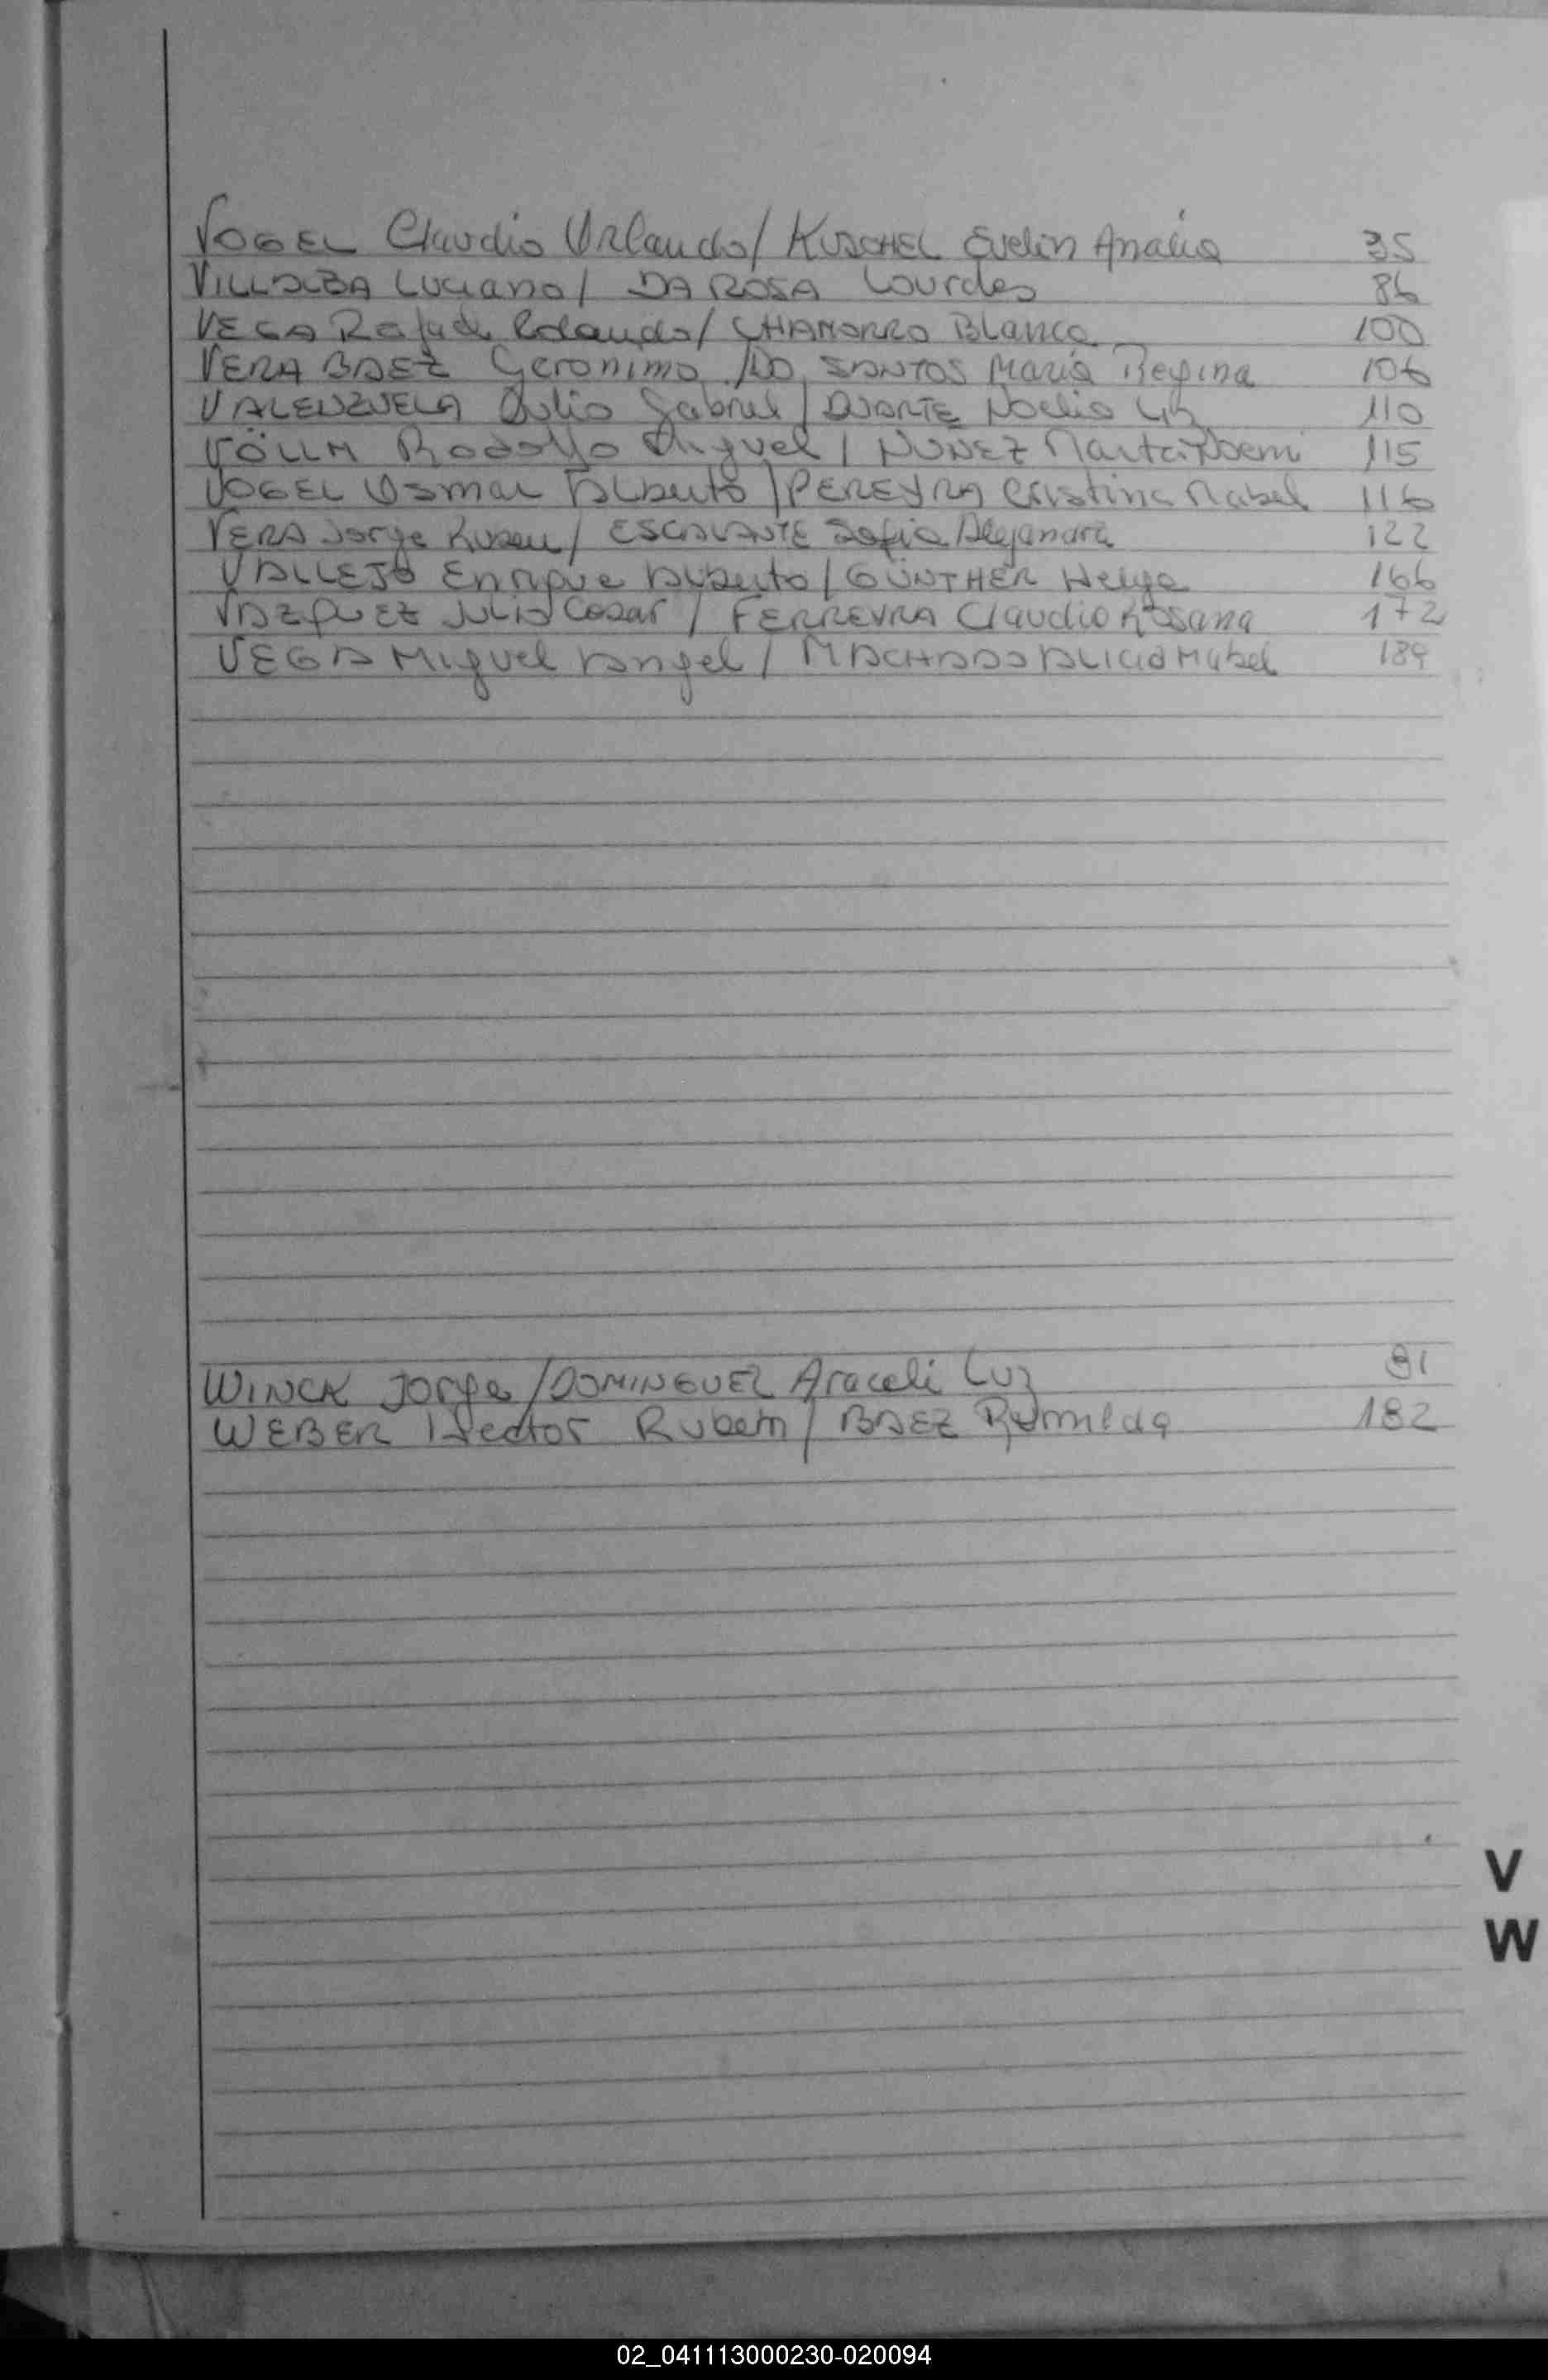 VOGEL Claudio Orlando / KUSCHEL Evelin Analia 35
VILLALBA Luciano / DA ROSA Lourdes 86
VEGA Rafael Rolando / CHAMORRO Blanca 100
VERA BAEZ Geronimo / DO SANTOS Maria Regina 106
VALENZUELA Julio Gabriel / DUARTE Noelia Liz 110
VÖLLM Rodolfo Miguel / NUÑEZ Marta Noemi 115
VOGEL Osmar Alberto / PEREYRA Cristina Mabel 116
VERA Jorge Ruben / ESCALANTE Sofia Alejandra 122
VALLEJO Enrique Alberto / GÜNTHER Helga 166
VAZQUEZ Julio Cesar / FERREYRA Claudio Rosana 172
VEGA Miguel Angel / MACHADO ALICIA Mabel 189
WINCK Jorge / DOMINGUEZ Araceli Luz 91
WEBER Hector Rubem / BAEZ Romilda 182
V
W
02_041113000230-020094